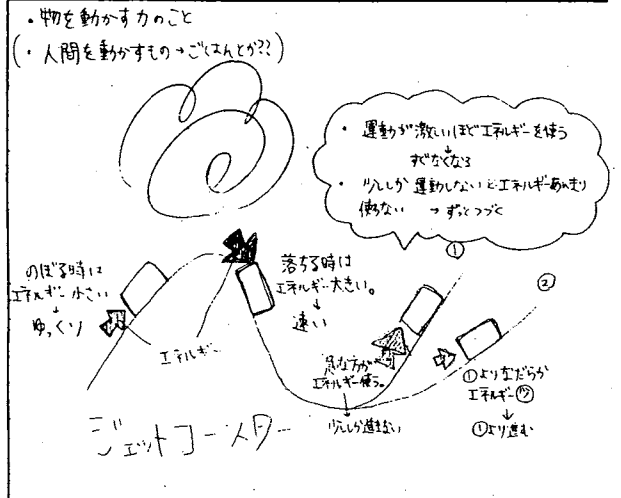 ・物を動かす力のこと
(・人間を動かすもの→ごはんとか??)
・運動が激しいほどエネルギーを使う
↓
すぐなくなる
・少ししか運動しないとエネルギーあんまり
使わない →ずっとつづく
のぼる時は
エネルギー小さい
↓
ゆっくり
エネルギー
落ちる時は
エネルギー大きい。
↓
速い
①
②
急な方が
エネルギー使う。
↓
少ししか進まない
①よりなだらか
エネルギー少
↓
①より進む
ジェットコースター